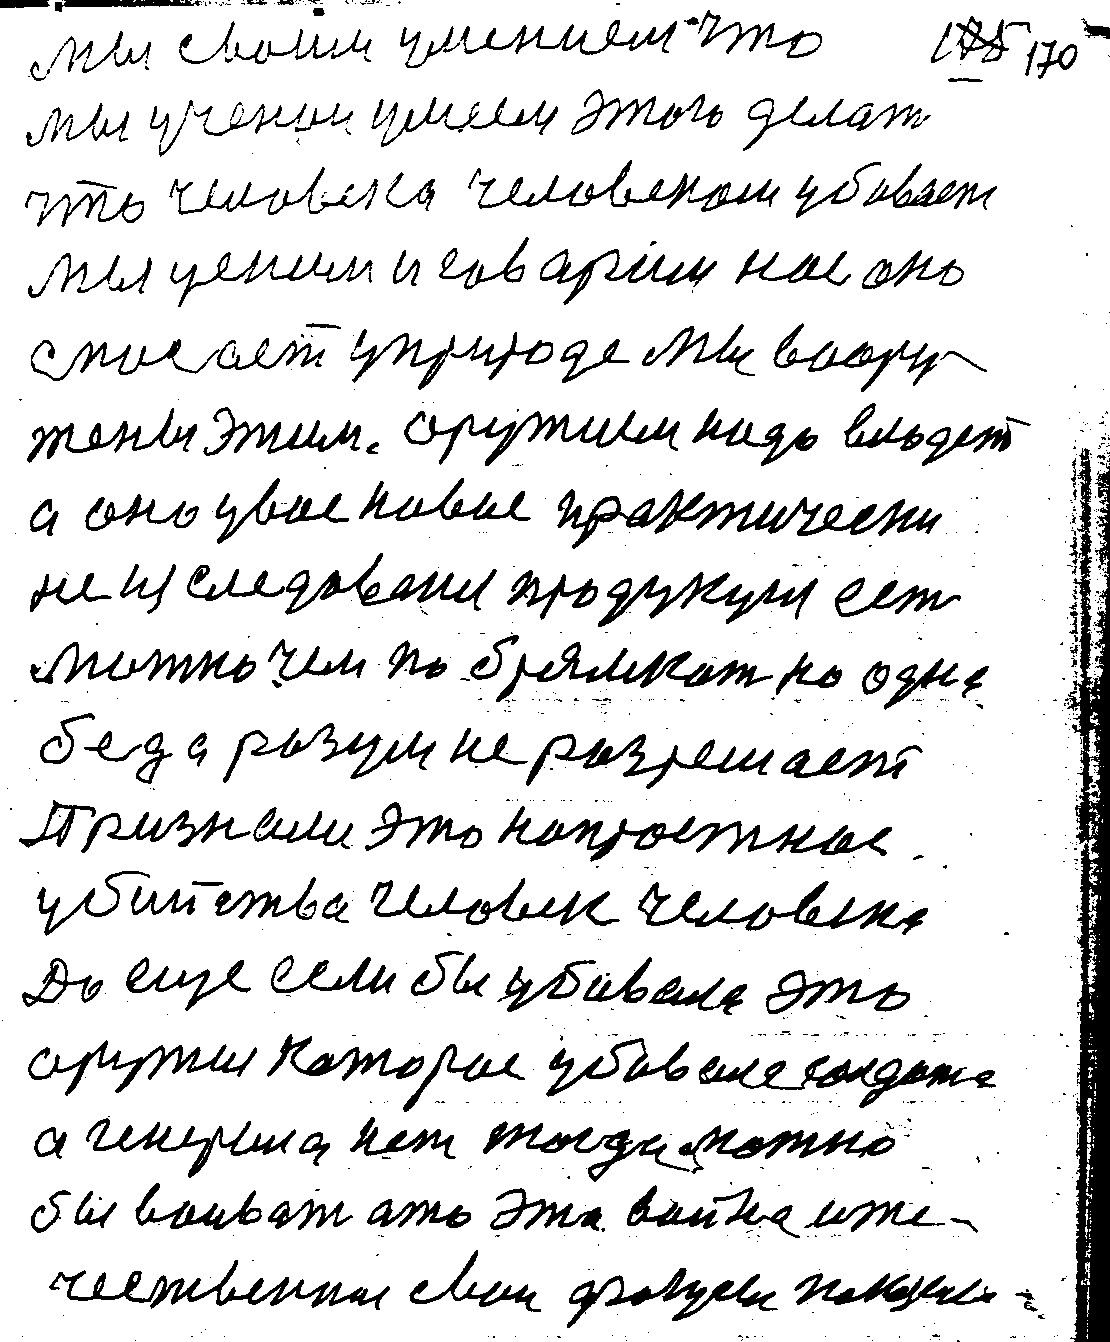 мы своим умением что 170
мы ученои умеем этого делат
что человека человеком убивает
мы ценим и говарим нас оно
спосает уприроде мы воору-
жены этим. оружием надо владет
а оно увас новое практически
не изследовани продукции ест
можно чем по брямкат но одна
беда разум не разрешает
Признали это напростное
убийства человек человека
До еще если бы убивала это
оружии которое убивале солдата
а генерала нет тогда можно
бы воиват ато эта война
чественнои свои